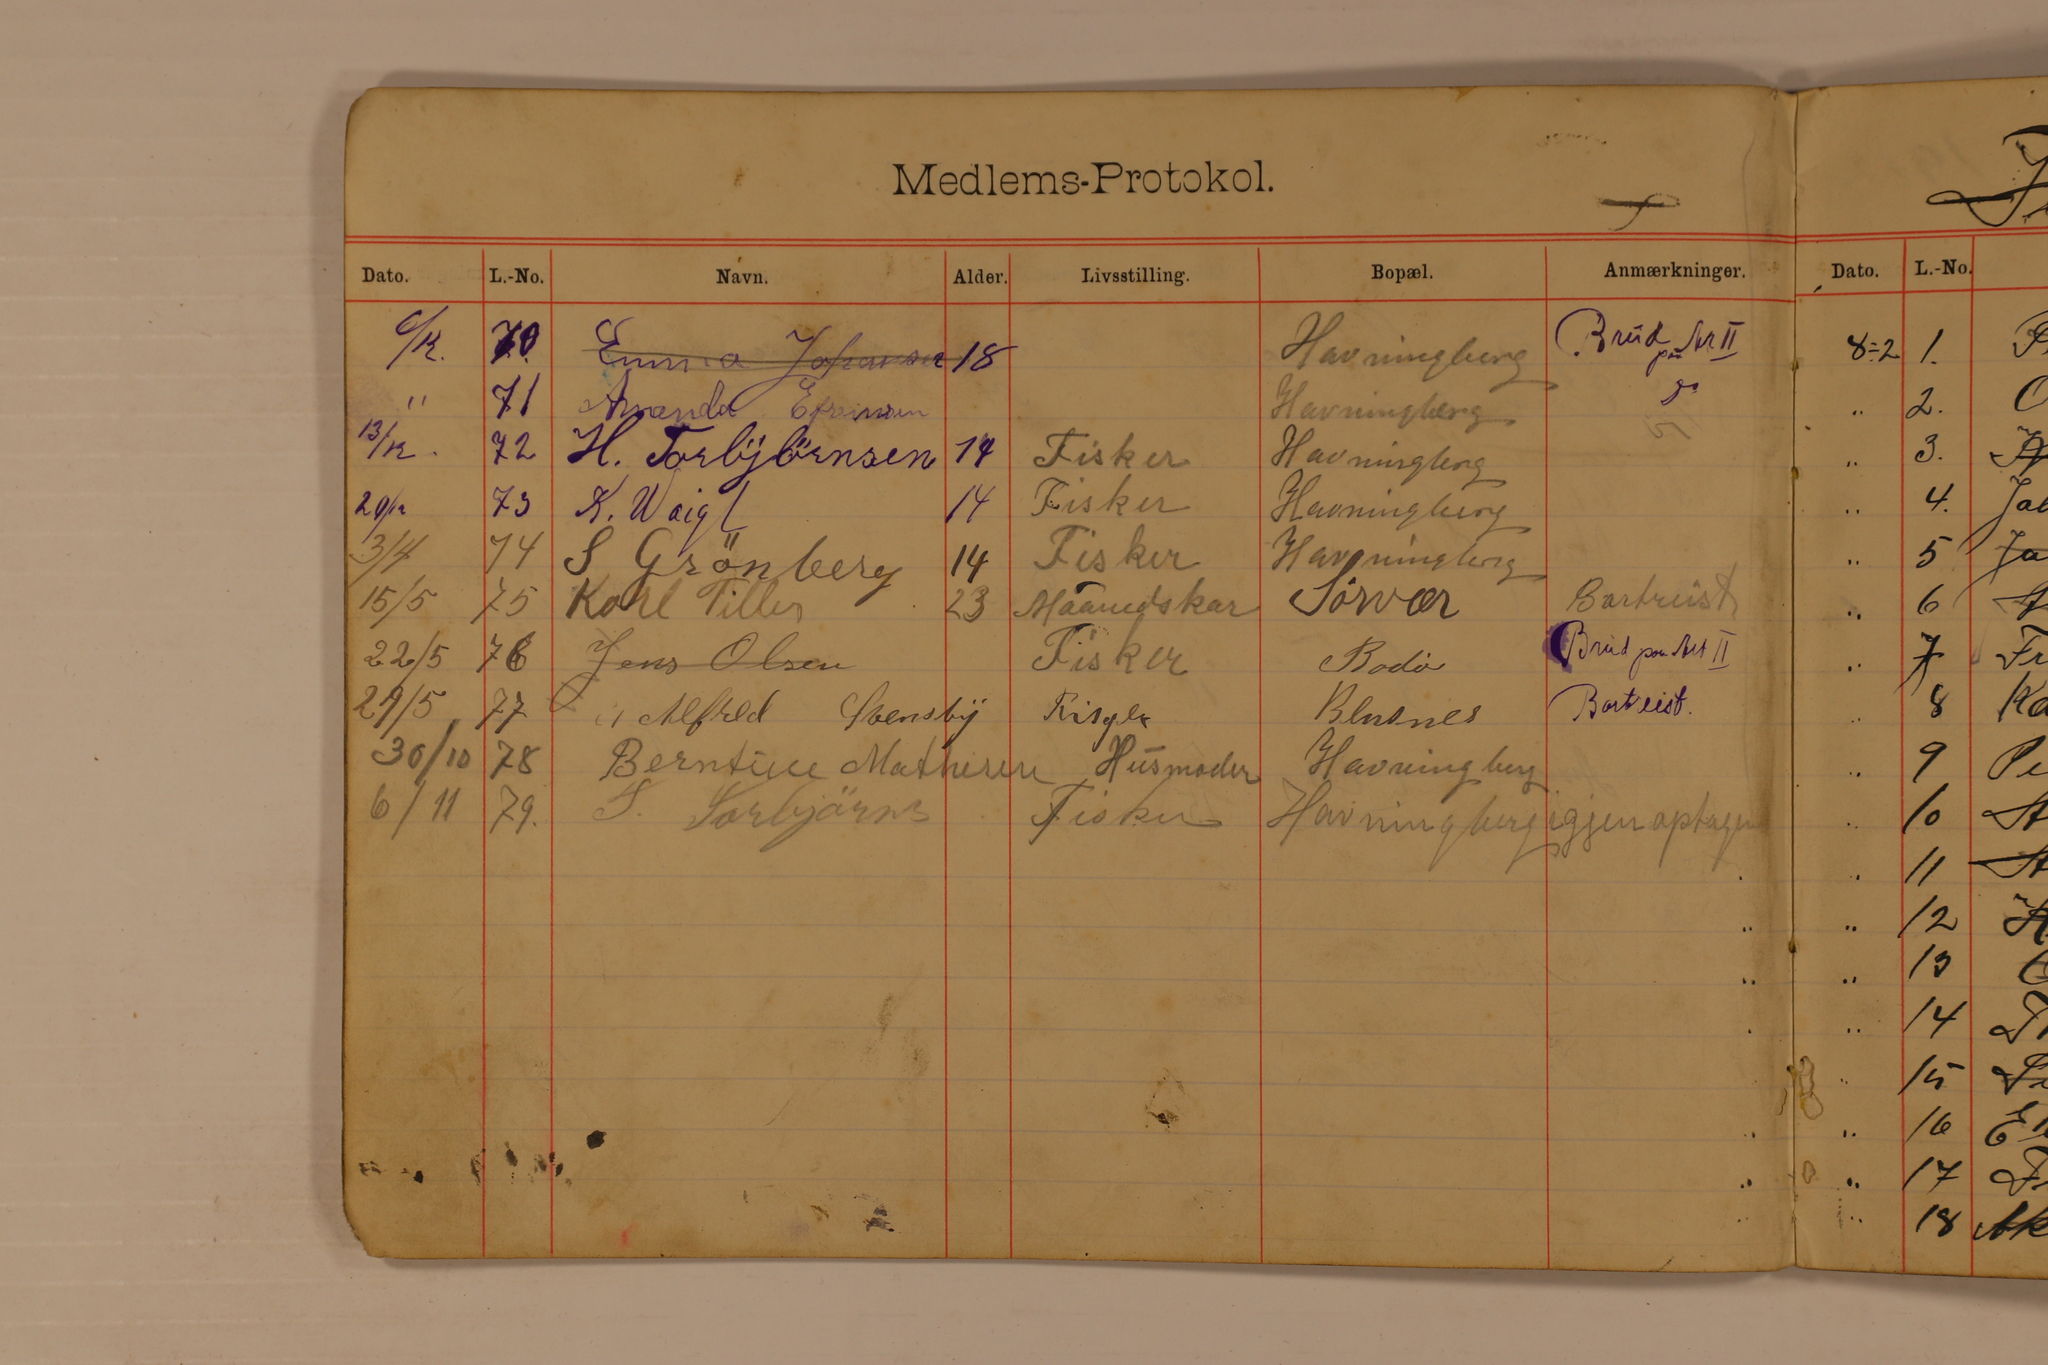 Medlems-Protokol.
Dato. L.-No. Navn. Alder. Livsstilling. Bopæl. Anmærkninger.
70 Emma Johansen 18 Havningberg Brüd paa Art II
" 71 Amanda Havningberg do
13/12. 72 H. Torbÿbörnsen 14 Fisker Havningberg
73 K. Waigl 14 Fisker Havningberg
3/4 74 S Grönberg 14 Fisker Havningberg
15/5 75 Karl Tiller 23 Maanedskar Sörvær Bortreist
22/5 76 Jens Olsen Fisker Bodö Brüd paa Art II
29/5 77 Alfred Stensbÿ Bortreist.
30/10 78 Berntine Mathisen Hüsmoder Havningberg
6/11 79. S. Torbjörns Fisker Havningberg igjen optagen
Dato. L.-No.
8÷2 1.
" 2.
" 3.
" 4.
" 5
" 6
" 7
" 8
" 9
" 10
" 11
" 12
" 13
" 14
" 15
" 16
" 17
" 18